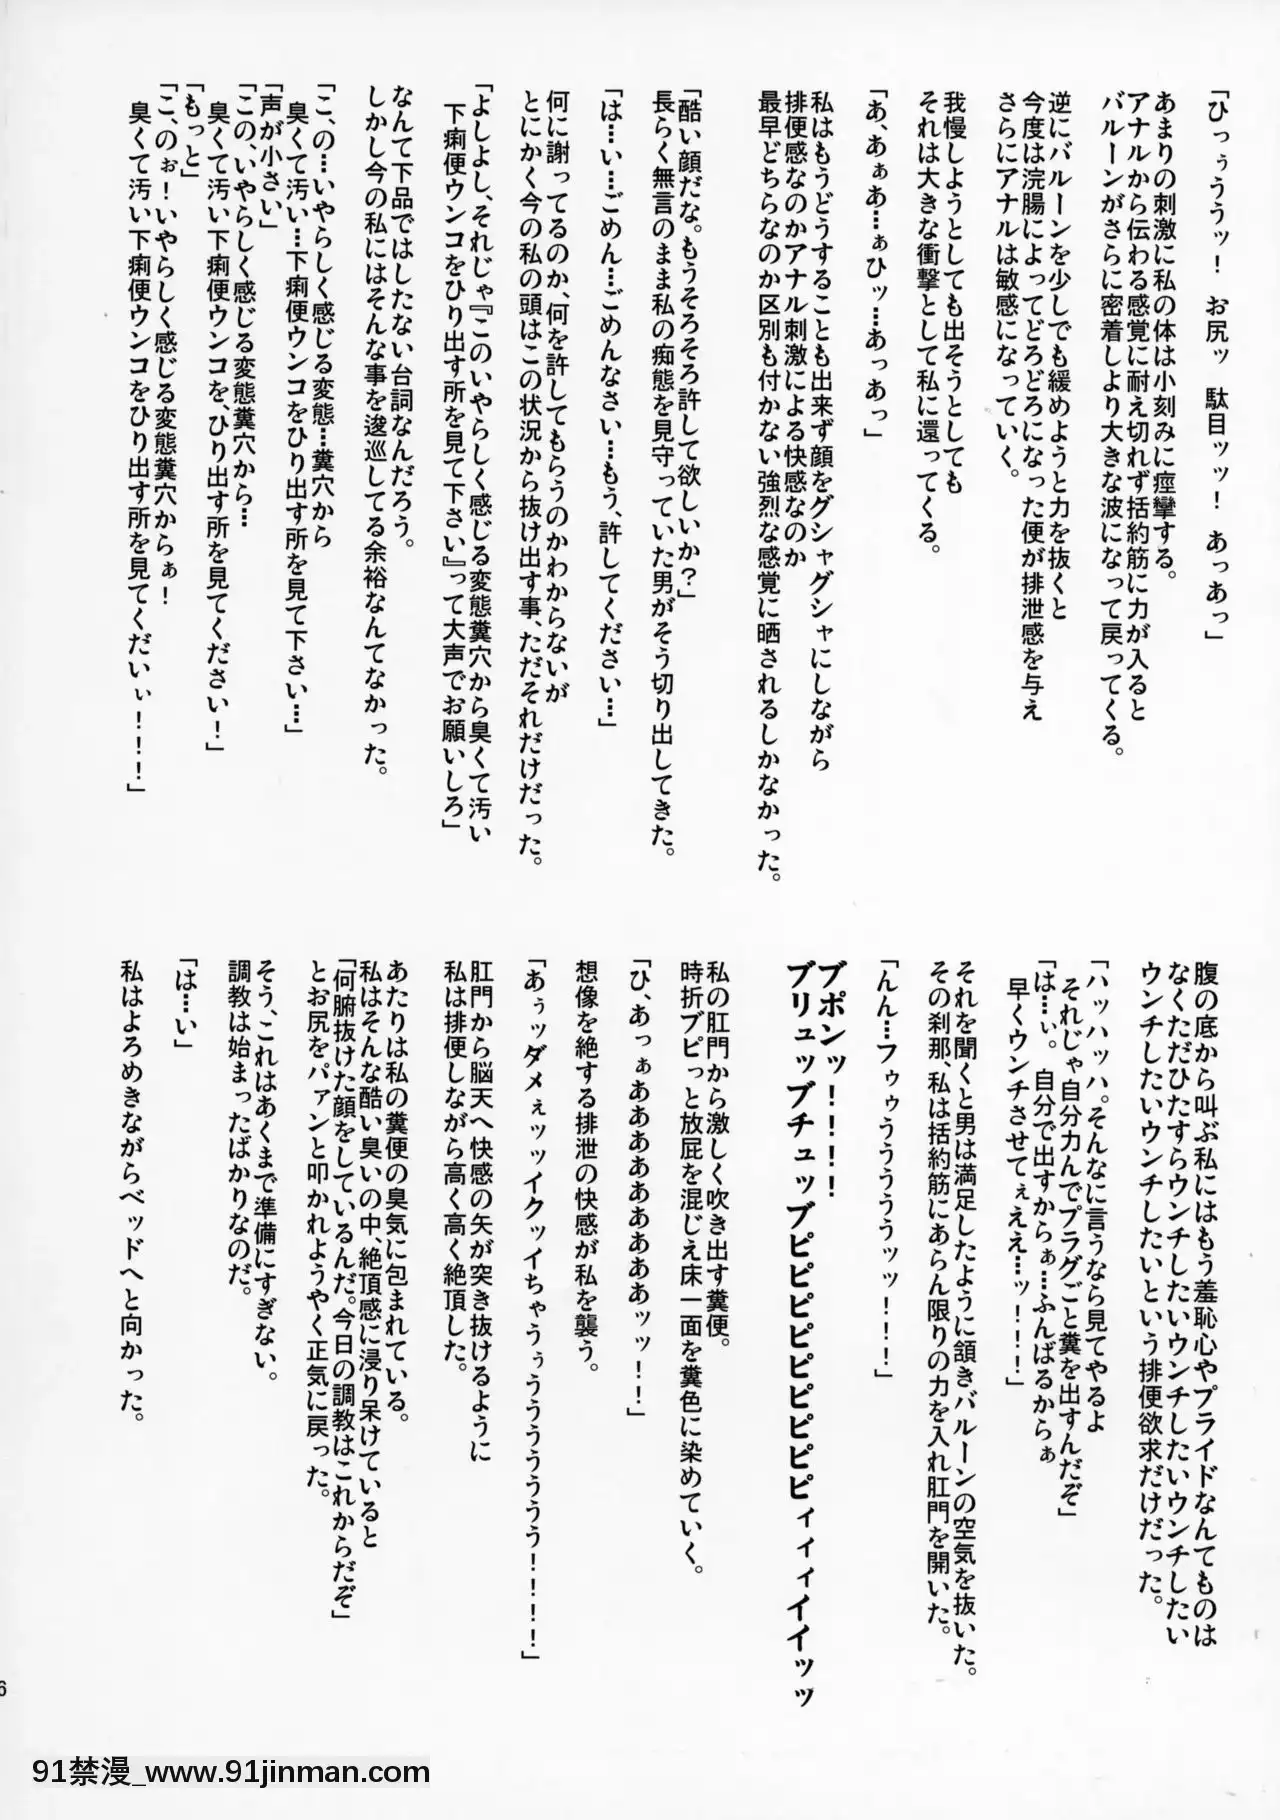 「ひっぅううッ！ お尻ッ 駄目ッッ！ あっあっ」
あまりの刺激に私の体は小刻みに痙攣する。
アナルから伝わる感覚に耐え切れず括約筋に力が入ると
バルーンがさらに密着しより大きな波になって戻ってくる。
逆にバルーンを少しでも緩めようと力を抜くと
今度は浣腸によってどろどろになった便が排泄感を与え
さらにアナルは敏感になっていく。
我慢しようとしても出そうとしても
それは大きな衝撃として私に還ってくる。
「あ、あぁあ…ぁひッ…あっあっ」
私はもうどうすることも出来ず顔をグシャグシャにしながら
排便感なのかアナル刺激による快感なのか
最早どちらなのか区別も付かない強烈な感覚に晒されるしかなかった。
「酷い顔だな。もうそろそろ許して欲しいか？」
長らく無言のまま私の痴態を見守っていた男がそう切り出してきた。
「は…い…ごめん…ごめんなさい…もう、許してください…」
何に謝ってるのか、何を許してもらうのかわからないが
とにかく今の私の頭はこの状況から抜け出す事、ただそれだけだった。
「よしよし、それじゃ『このいやらしく感じる変態糞穴から臭くて汚い
下痢便ウンコをひり出す所を見て下さい』って大声でお願いしろ」
なんて下品ではしたない台詞なんだろう。
しかし今の私にはそんな事を逡巡してる余裕なんてなかった。
「こ、の…いやらしく感じる変態…糞穴から
臭くて汚い…下痢便ウンコをひり出す所を見て下さい…」
「声が小さい」
「この、いやらしく感じる変態糞穴から…
臭くて汚い下痢便ウンコを、ひり出す所を見てください！」
「もっと」
「こ、のぉ！いやらしく感じる変態糞穴からぁ！
臭くて汚い下痢便ウンコをひり出す所を見てくだいぃ！！！」
腹の底から叫ぶ私にはもう羞恥心やプライドなんてものは
なくただひたすらウンチしたいウンチしたいウンチしたい
ウンチしたいウンチしたいという排便欲求だけだった。
「ハッハッハ。そんなに言うなら見てやるよ
それじゃ自分力んでプラグごと糞を出すんだぞ」
「は…ぃ。自分で出すからぁ…ふんばるからぁ
早くウンチさせてぇええ…ッ！！！」
それを聞くと男は満足したように頷きバルーンの空気を抜いた。
その刹那、私は括約筋にあらん限りの力を入れ肛門を開いた。
「んん…フゥゥううううッッ！！！」
ブポンッ！！！！
ブリュッッブチュッッブピピピピピピピピピィィィイイッッ
私の肛門から激しく吹き出す糞便。
時折ブピっと放屁を混じえ床一面を糞色に染めていく。
「ひ、あっぁあああああああああッッ！！」
想像を絶する排泄の快感が私を襲う。
「あぅッダメぇッッイクッイちゃうぅうううううう！！！！」
肛門から脳天へ快感の矢が突き抜けるように
私は排便しながら高く高く絶頂した。
あたりは私の糞便の臭気に包まれている。
私はそんな酷い臭いの中、絶頂感に浸り呆けていると
「何腑抜けた顔をしているんだ。今日の調教はこれからだぞ」
とお尻をパァンと叩かれようやく正気に戻った。
そう、これはあくまで準備にすぎない。
調教は始まったばかりなのだ。
「は…い」
私はよろめきながらベッドへと向かった。
6
91禁漫_www.91jinman.com